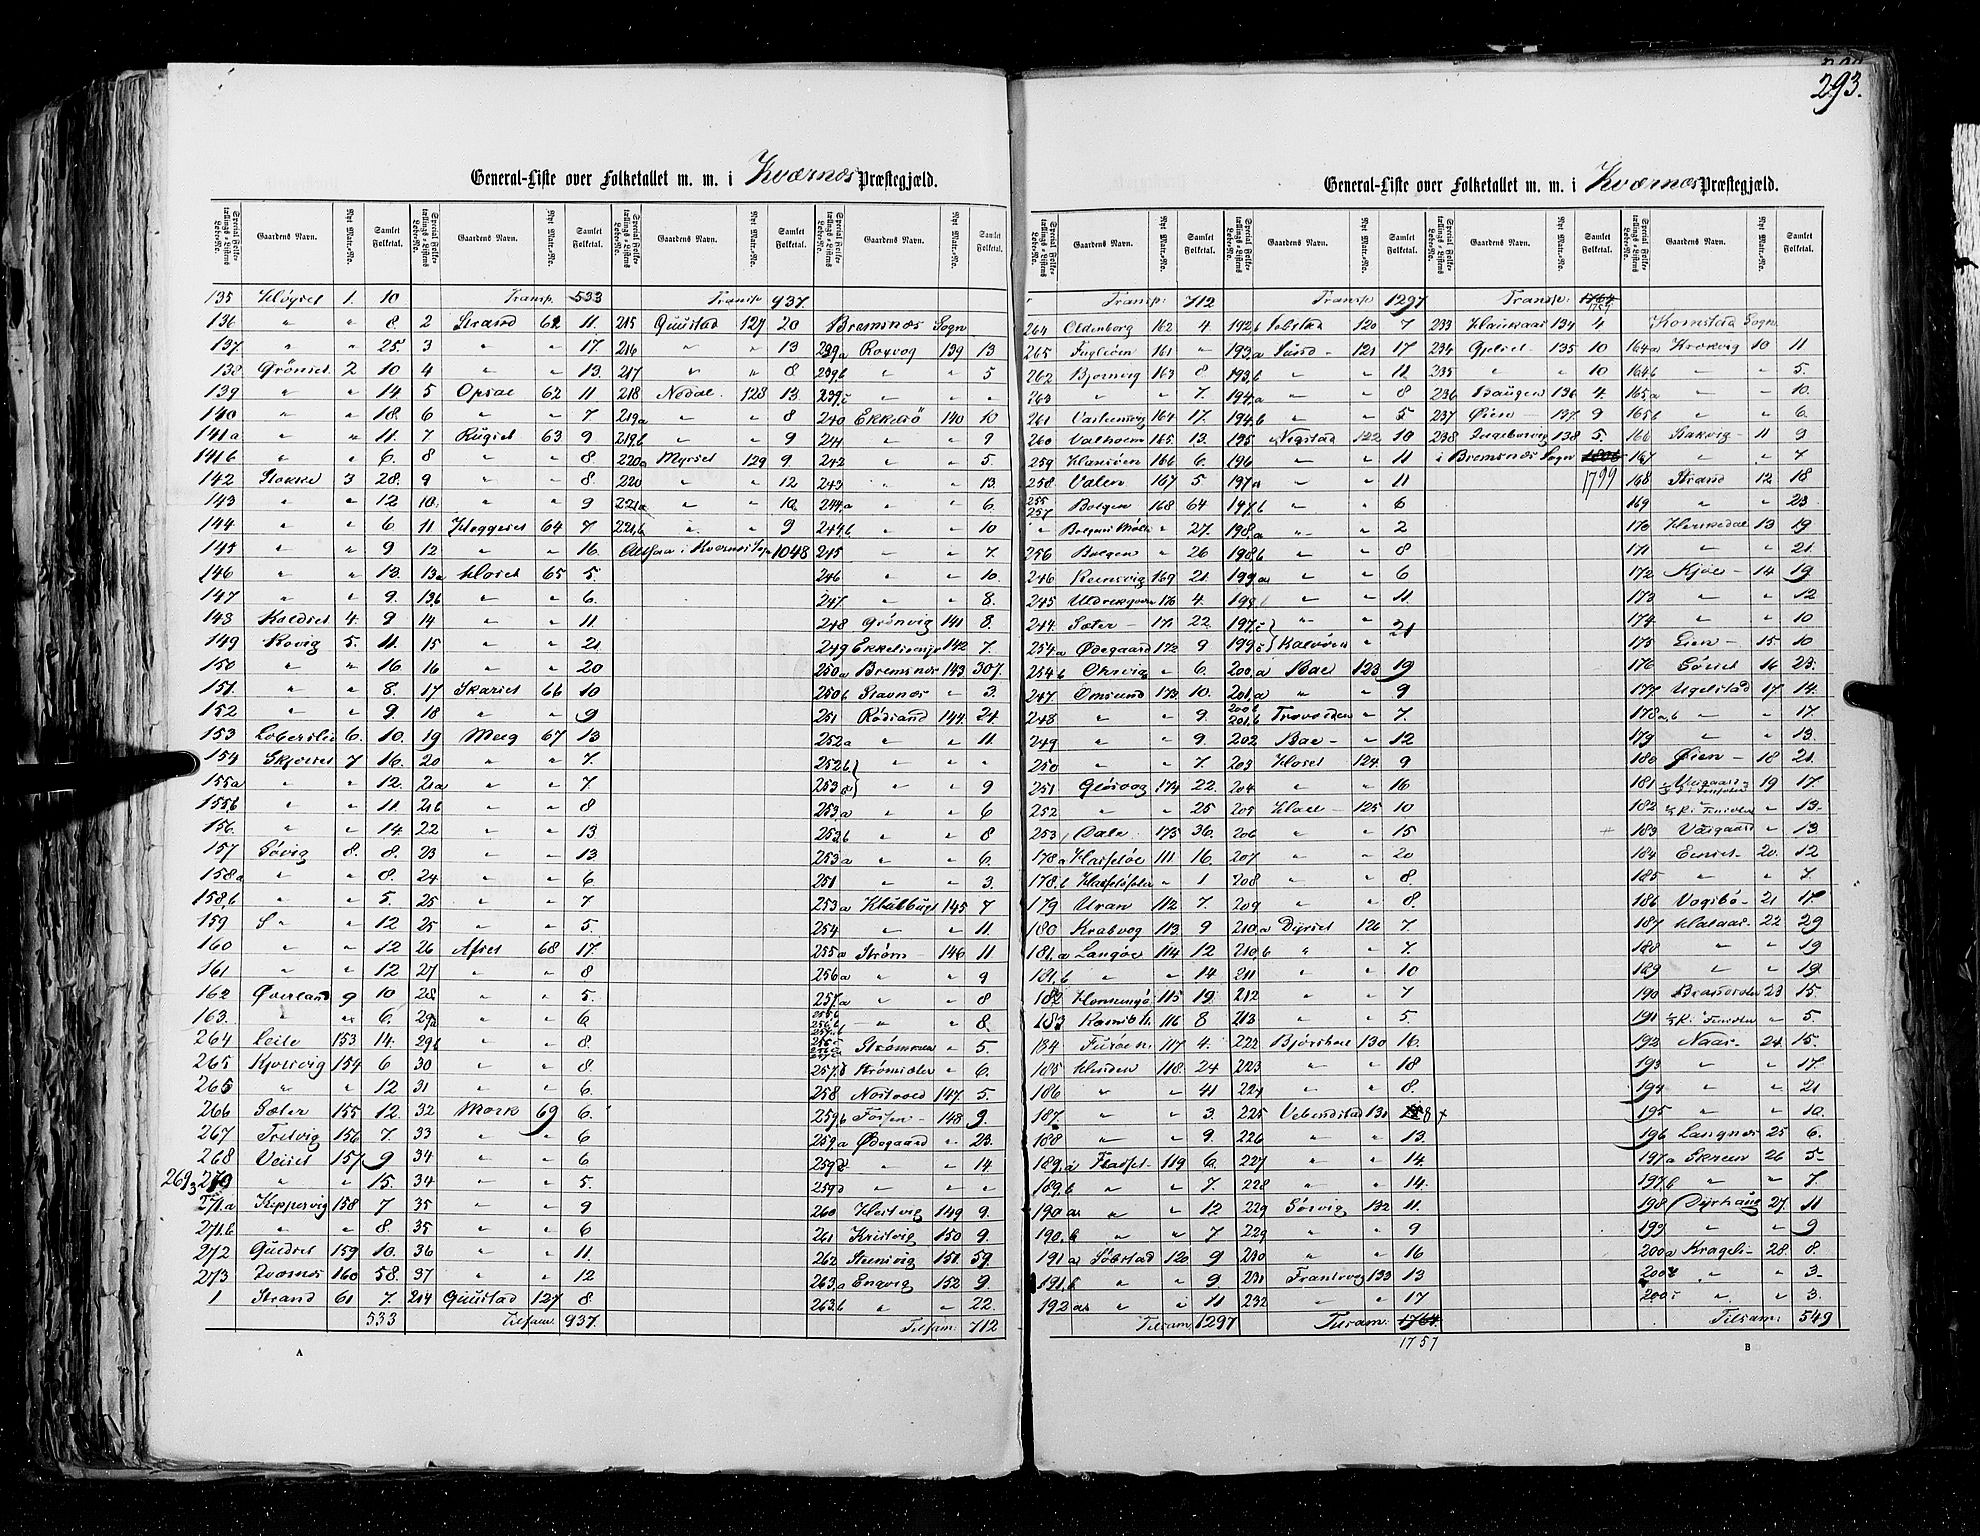 293.
General-Liste over Folketallet m. m. i Kværnæs Præstegjæld.
Special Folketællings-Listens Løbe-No. Gaardens Navn. Nyt Matr.-No. Samlet Folketal. Special Folketællings-Listens Løbe-No. Gaardens Navn. Nyt Matr.-No. Samlet Folketal. Special Folketællings-Listens Løbe-No. Gaardens Navn. Nyt Matr.-No. Samlet Folketal. Special Folketællings-Listens Løbe-No. Gaardens Navn. Nyt Matr.-No. Samlet Folketal.
135 1. 10
136 " " 8.
137. " " 25.
138 Grönset 2 10
139 " " 14.
140 " " 18.
141a " " 11.
141b " " 6.
142 Stokke 3 28.
143 " " 12
144 " " 6
145 " " 9
146 " " 13.
147 " " 9.
148 4. 9
149 5. 11.
150 " " 16
151. " " 8.
152 " " 9.
153 6. 10.
154 7 16.
155a " " 12.
155b " " 11.
156. " " 14
157 Sövig 8. 8.
158a " " 8.
158b " " 5.
159 " 12
160 " " 12
161 " " 12
162 Överland 9 10
163. " " 6.
264 153 14.
265 154 6
265 " " 12
266 Sæter 155 12.
267 156 7.
268 157 9
270 " " 15.
271.a 158 7
271.b " " 8.
272 159 10.
273 160 58.
1 Strand 61 7.
533
Transp. 533
2 Strand 61 11.
3 " " 17.
4 " " 13.
5 Opsal 62 11
6 " " 7
7 63 9
8 " " 8
9 " " 8
10. " " 9
11 64 7
12 " " 16.
13a 65 5.
13b " " 6.
14 " " 11
15 " " 21
16 " " 20
17 Skarset 66 10
18 " " 9
19 67 13
20 " " 7.
21a " " 7.
21b " " 8
22 " " 13
23 " " 13
24 " " 6
25 " " 7
25 " " 5.
26 68 17.
27 " " 8
28 " " 5.
29a " " 6.
29b " " 8
30 " " 8.
31 " " 6.
32 Mork 69 6.
33 " " 6
34 " " 6
34 " " 5.
35 " " 9
35 " " 6
36 " " 11.
37 " " 12
214 127 8
Tilsam. 937.
Transp 937.
215 127 20
216 " " 13
217 " " 8
218 Nodal. 128 13.
219a " " 8
219b " " 9
220a Myrset 129 9.
220 " " 12
221a " " 10
221b " " 9
1048
Bremsnæs Sogn
239a Roxvog 139 13
239b " " 5
240 140 10
241 " " 9
242 " " 5.
243 " " 13.
244a " " 6.
244b " " 10
245 " " 7.
246 " " 10.
247. " " 8.
248 Grönvig 141 8.
249 142 7.
250a Bremsnæs 143 307.
250b " 3.
251 Rödsand 144 24.
252a " " 11.
252b " " "
253 " " 9
253.a " " 6
253.b " " 8
253a " " 6.
251 " " 3.
253a 145 7
254 " " 11
255a Ström 146 11
256a " " 9
257.a " " 8
" " 8.
Strömmen " 5.
" 6.
258 147. 5.
259b 148 9.
259a Ödegaard " 23.
" " 14
259d " " "
260 149 9.
261 150 9.
262 151. 59.
263.a Engvig 152 9
263.b " " 22.
Tilsam: 712

General-Liste over Folketallet m. m. i Kværnæs Præstegjæld.
Special Folketællings-Listens Løbe-No. Gaardens Navn. Nyt Matr.-No. Samlet Folketal. Special Folketællings-Listens Løbe-No. Gaardens Navn. Nyt Matr.-No. Samlet Folketal. Special Folketællings-Listens Løbe-No. Gaardens Navn. Nyt Matr.-No. Samlet Folketal. Special Folketællings-Listens Løbe-No. Gaardens Navn. Nyt Matr.-No. Samlet Folketal.
Transp: 712
264 Oldenborg 162 4.
265 161 "
262 Bjornvig 163 8
263 " " 7.
261 164 17.
260 Valholm 165 13.
259 166 6.
258. Valen 167 5
255 257 Bolgen 168 64
" " 27.
256 Bolgen " 26
246 169 21.
245 170 4.
244. Sæter 171 22.
254.a Ödegaard 172 9
254b " 6.
247. Omsund 173. 10.
248 " " 9.
249 " " 9.
250 " " 7
251 174 22.
252 " " 25
253 Dale 175 36.
178.a 111. 16.
178.b " 1
179 112 7.
180 Krabvog 113 9
181.a Langöe 114 12
181.b " " 14
182 115 19.
183 116 8
184 117 4.
185 118 24
186 " " 41
187. " " 3.
188 " " 9.
189.a 119 6.
189.b " " 7.
190 a " " 12
190.b " " 7
191 a 120 9
191.b " " 9.
192 a " " 11
Tilsam. 1297
Transp 1297
192.b 120 7
193.a Sund 121 17
193.b " " 11
194.a " " 8
194.b " " 5
195 122 10
196 " " 11
197a " " 11
197.b " " 6
198.a " " 2
198.b " " 8
199 a " " 6
" " 11.
21
200.a Bae 123 19
201.a " " 9
200b 201.b " 7.
202 Bae " 12
203 124. 9
204 " " 16
205 125 10
206 " " 15
207 " " 20
208 " " 8.
209 " " 8.
210 a Dyrset 126 7.
210.b " " 7.
211 " " 10
212 " " 7
213 " " 5.
222 130 16.
223 " " 18
224 " " 8.
225 131 8
226 " " 13.
227 " " 14.
228 " " 14.
229 Sörvig 132 11.
229 " " 9
230 " " 16
231 133 13
232 " " 17
Tilsam: 1764.
1757
Transp: 1764
1757
233 134 4
234 135 10
235 " " 10
236 Haugen 136 4.
237 Öien 137. 9
238 Ingeborvig 138 5.
i Bremsnæs Sogn 1806
1799
Kornstad Sogn.
164a Krokvig 10 11
164b " " 5.
165a " " 10.
165b " " 6.
166 11 9
167 " " 7
168 Strand 12 18
169 " " 23
170 13 19
171 " " 21.
172 14 19
173 " " 12
174 " " 10
175 Lien 15 10
176 16 23.
177. 17 14.
178a,b " " 17.
179 " " 13.
180 Öien 18 21.
181 19 17.
182 " 13.
183 " 13.
184 20. 12
185 " " 7.
186 21 17
187 22 29
188 " " 19
189 " " 19.
190 23 15.
191 " 5.
192 Naas 24. 15.
193 " " 17.
194 " " 21
195 " " 10.
196 Langnes 25 6.
197a 26 5.
197.b " " 7.
198 Dyrhaug 27. 11
199 " " 9
200a 28. 8.
" " 3.
" " 3.
Tilsam: 549
A
B